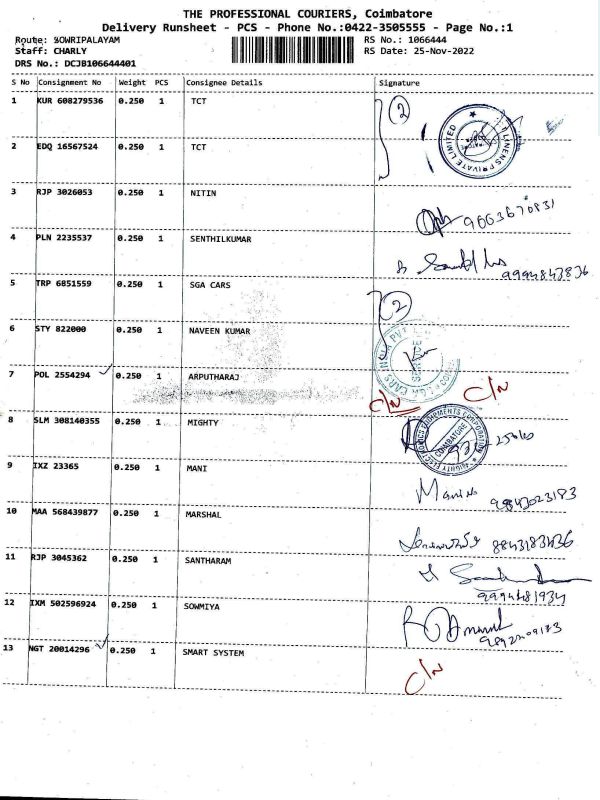 THE PROFESSIONAL COURIERS, Coimbatore
Delivery Runsheet - PCS - Phone No.:0422-3505555 - Page No.:1
Route: SOWRIPALAYAM RS No.: 1066444
Staff: CHARLY RS Date: 25-Nov-2022
DRS No.: DCJB106644401
S No Consignment No Weight PCS Consignee Details Signature
1 KUR 608279536 0.250 1 TCT 2
2 EDQ 16567524 0.250 1 TCT
LINENS PRIVATE LIMITED
3 RJP 3026053 0.250 1 NITIN
4 PLN 2235537 0.250 1 SENTHILKUMAR
9994843836
5 TRP 6851559 0.250 1 SGA CARS 2
6 STY 822000 0.250 1 NAVEEN KUMAR
SGA CARS INDIA PVT
7 POL 2554294 0.250 1 ARPUTHARAJ
C/N C/N
8 SLM 308140355 0.250 1 MIGHTY
MIGHTY ELECTRONICS EQUIPMENTS CORPORATION
COIMBATORE
9 IXZ 23365 0.250 1 MANI
9843023183
10 MAA 568439877 0.250 1 MARSHAL
8843183436
11 RJP 3045362 0.250 1 SANTHARAM
9994481934
12 IXM 502596924 0.250 1 SOWMIYA
13 NGT 20014296 0.250 1 SMART SYSTEM
C/N